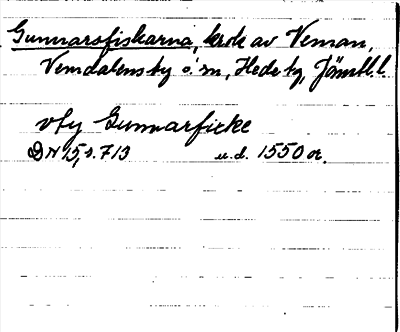 Gunnarsfiskarna, krok av Veman,
Vemdalens ky o. sn, Hede tg, Jämtl. l.
vty Gunnarficke
DN 15, s. 713 u.d. 1550 or.